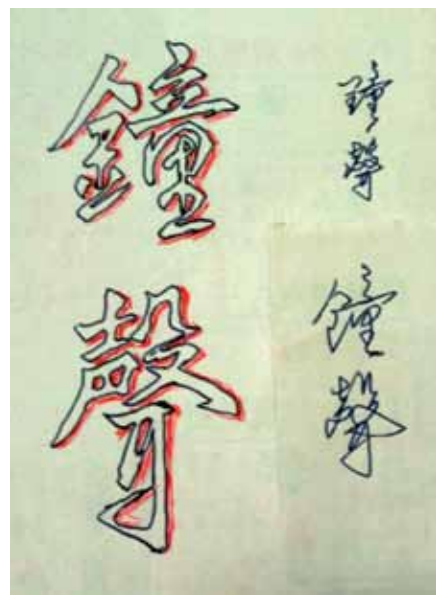 鐘聲
鐘聲
鐘聲